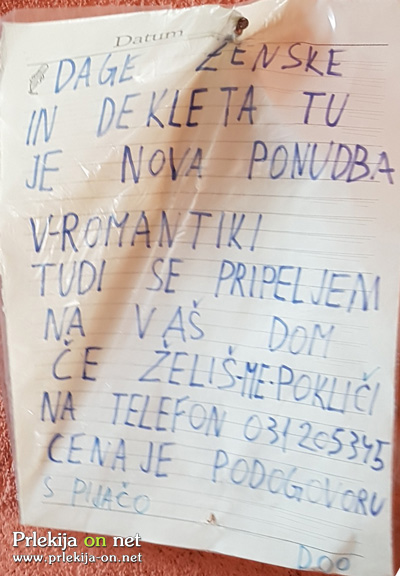 Datum
DAGE ŽENSKE
IN DEKLETA TU
JE NOVA PONUDBA
V-ROMANTIKI
TUDI SE PRIPELJEM
NA VAŠ DOM
ČE ŽELIŠ-ME-POKLIČI
NA TELEFON 031205345
CENA JE PODOGOVORU
S PIJAČO
DOO
Prlekija on net
www.prlekija-on.net